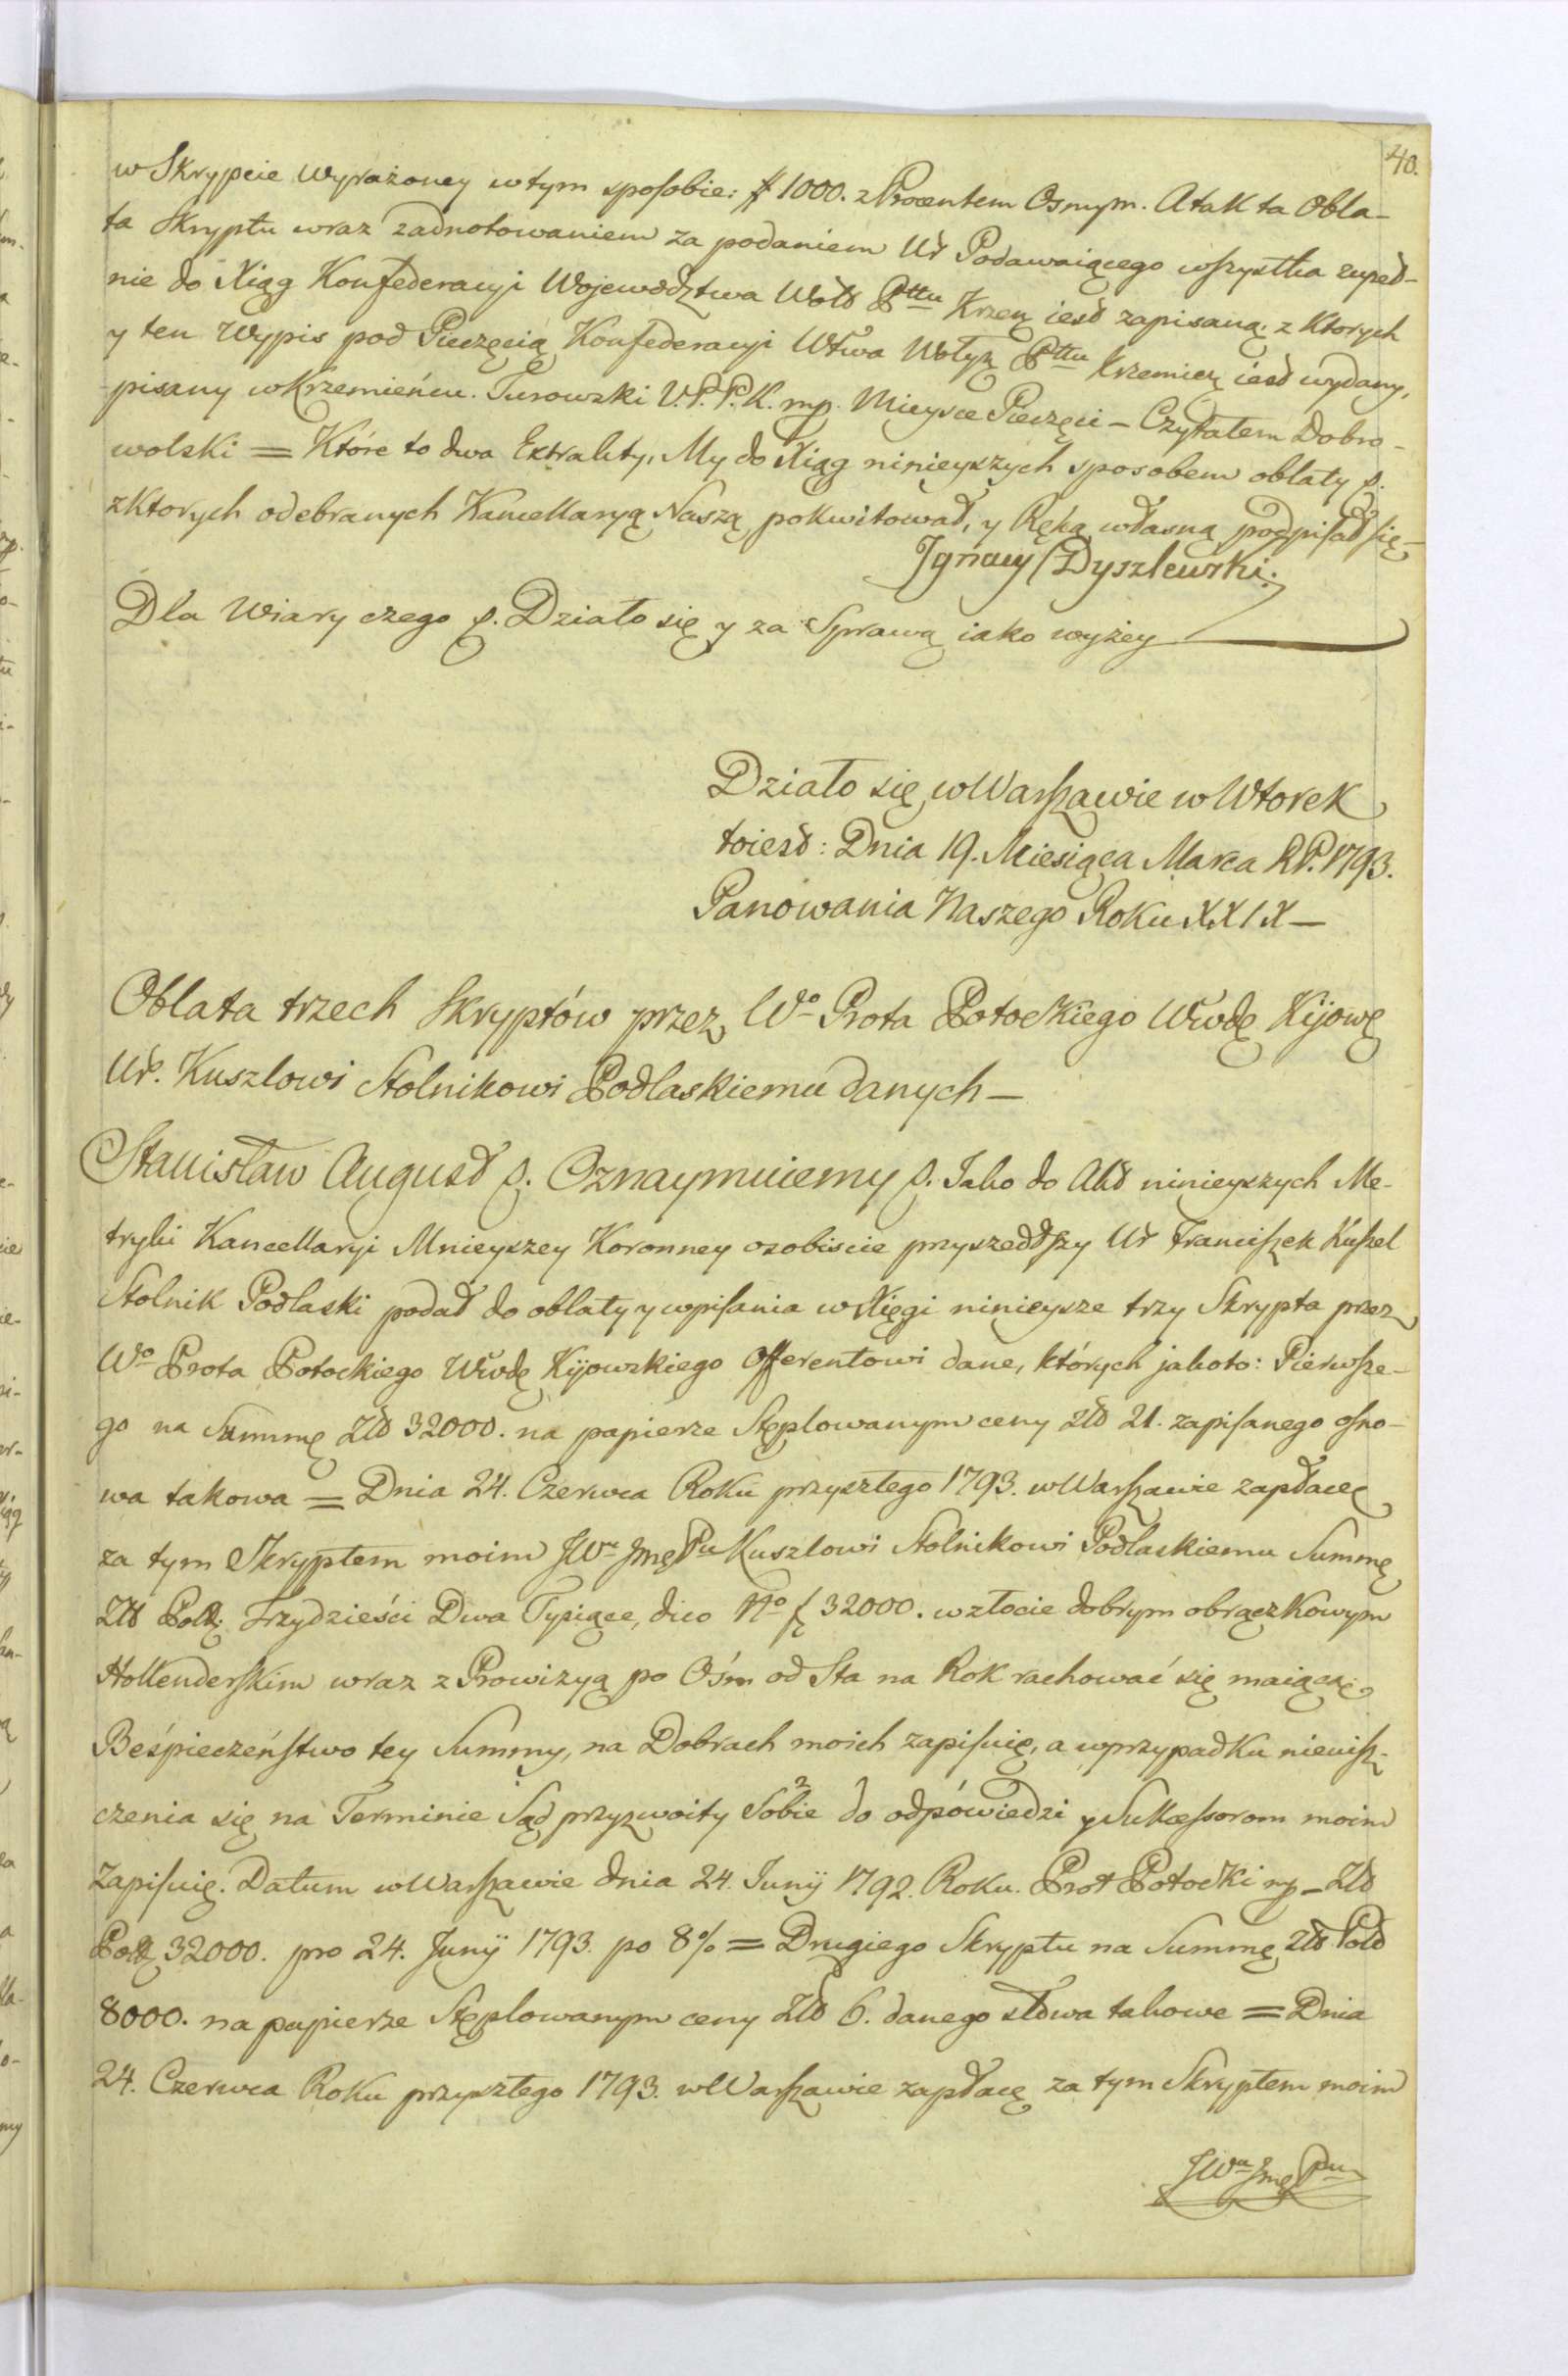 40.
w Skrypcie wyrażoney w tym sposobie: # 1000. z Procentem Osmym. A tak ta Obla-
ta Skryptu wraz z adnotowaniem za podaniem Ur Podawaiącego wszystka zupeł-
nie do Xiąg Konfederacyi Województwa Woł Pttu Krzem iest zapisaną, z ktorych
y ten Wypis pod Pieczęcią Konfederacyi Wtwa Wołyn Pttu Krzemien iest wydany,
pisany w Krzemieńcu. Turowski V.P.P.K. mp. Mieysce Pieczęci – Czytałem Dobro-
wolski = Które to dwa Extrakty, My do Xiąg ninieyszych sposobem oblaty p.
z ktorych odebranych Kancellaryą Naszą pokwitował, y Ręką własną podpisał się –
Ignacy Dyszlewski.
Dla Wiary czego p. Działo się y za Sprawą iako wyżey
Działo się w Warszawie w Wtorek
to iest: Dnia 19. Miesiąca Marca R.P. 1793.
Panowania Naszego Roku XXIX –
Oblata trzech Skryptów przez Wo Prota Potockiego Wwdę Kijow
Ur. Kuszlowi Stolnikowi Podlaskiemu danych –
Stanisław August p. Oznaymuiemy p. Iako do Akt ninieyszych Me-
tryki Kancellaryi Mnieyszey Koronney osobiscie przyszedłszy Ur Franciszek Kuszel
Stolnik Podlaski podał do oblaty y wpisania w Xięgi ninieysze trzy Skrypta przez
Wo Prota Potockiego Wwdę Kijowskiego Offerentowi dane, których jakoto: Pierwsze-
go na Summę Złt 32000. na papierze Stęplowanym ceny złt 21. zapisanego osno-
wa takowa = Dnia 24. Czerwca Roku przyszłego 1793. w Warszawie zapłacę
za tym Skryptem moim JWu Jmę Pu Kuszlowi Stolnikowi Podlaskiemu Summę
Złt Polk Trzydzieści Dwa Tysiące, dico No f 32000. w złocie dobrym obrączkowym
Hollenderskim wraz z Prowizyą po Ośm od Sta na Rok rachować się maiącą
Beśpieczeństwo tey Summy, na Dobrach moich zapisuię, a w przypadku nieuisz-
czenia się na Terminie Sąd przyzwoity Sobie do odpówiedzi y Sukcessorom moim
Zapisuię. Datum w Warszawie dnia 24. Junÿ 1792. Roku. Prot Potocki mp – Złt
Polk 32000. pro 24. Junÿ 1793. po 8% = Drugiego Skryptu na Summę złt Pold
8000. na papierze Stęplowanym ceny Złt 6. danego słowa takowe = Dnia
24. Czerwca Roku przyszłego 1793. w Warszawie zapłacę za tym Skryptem moim
JWu Jmę Pu